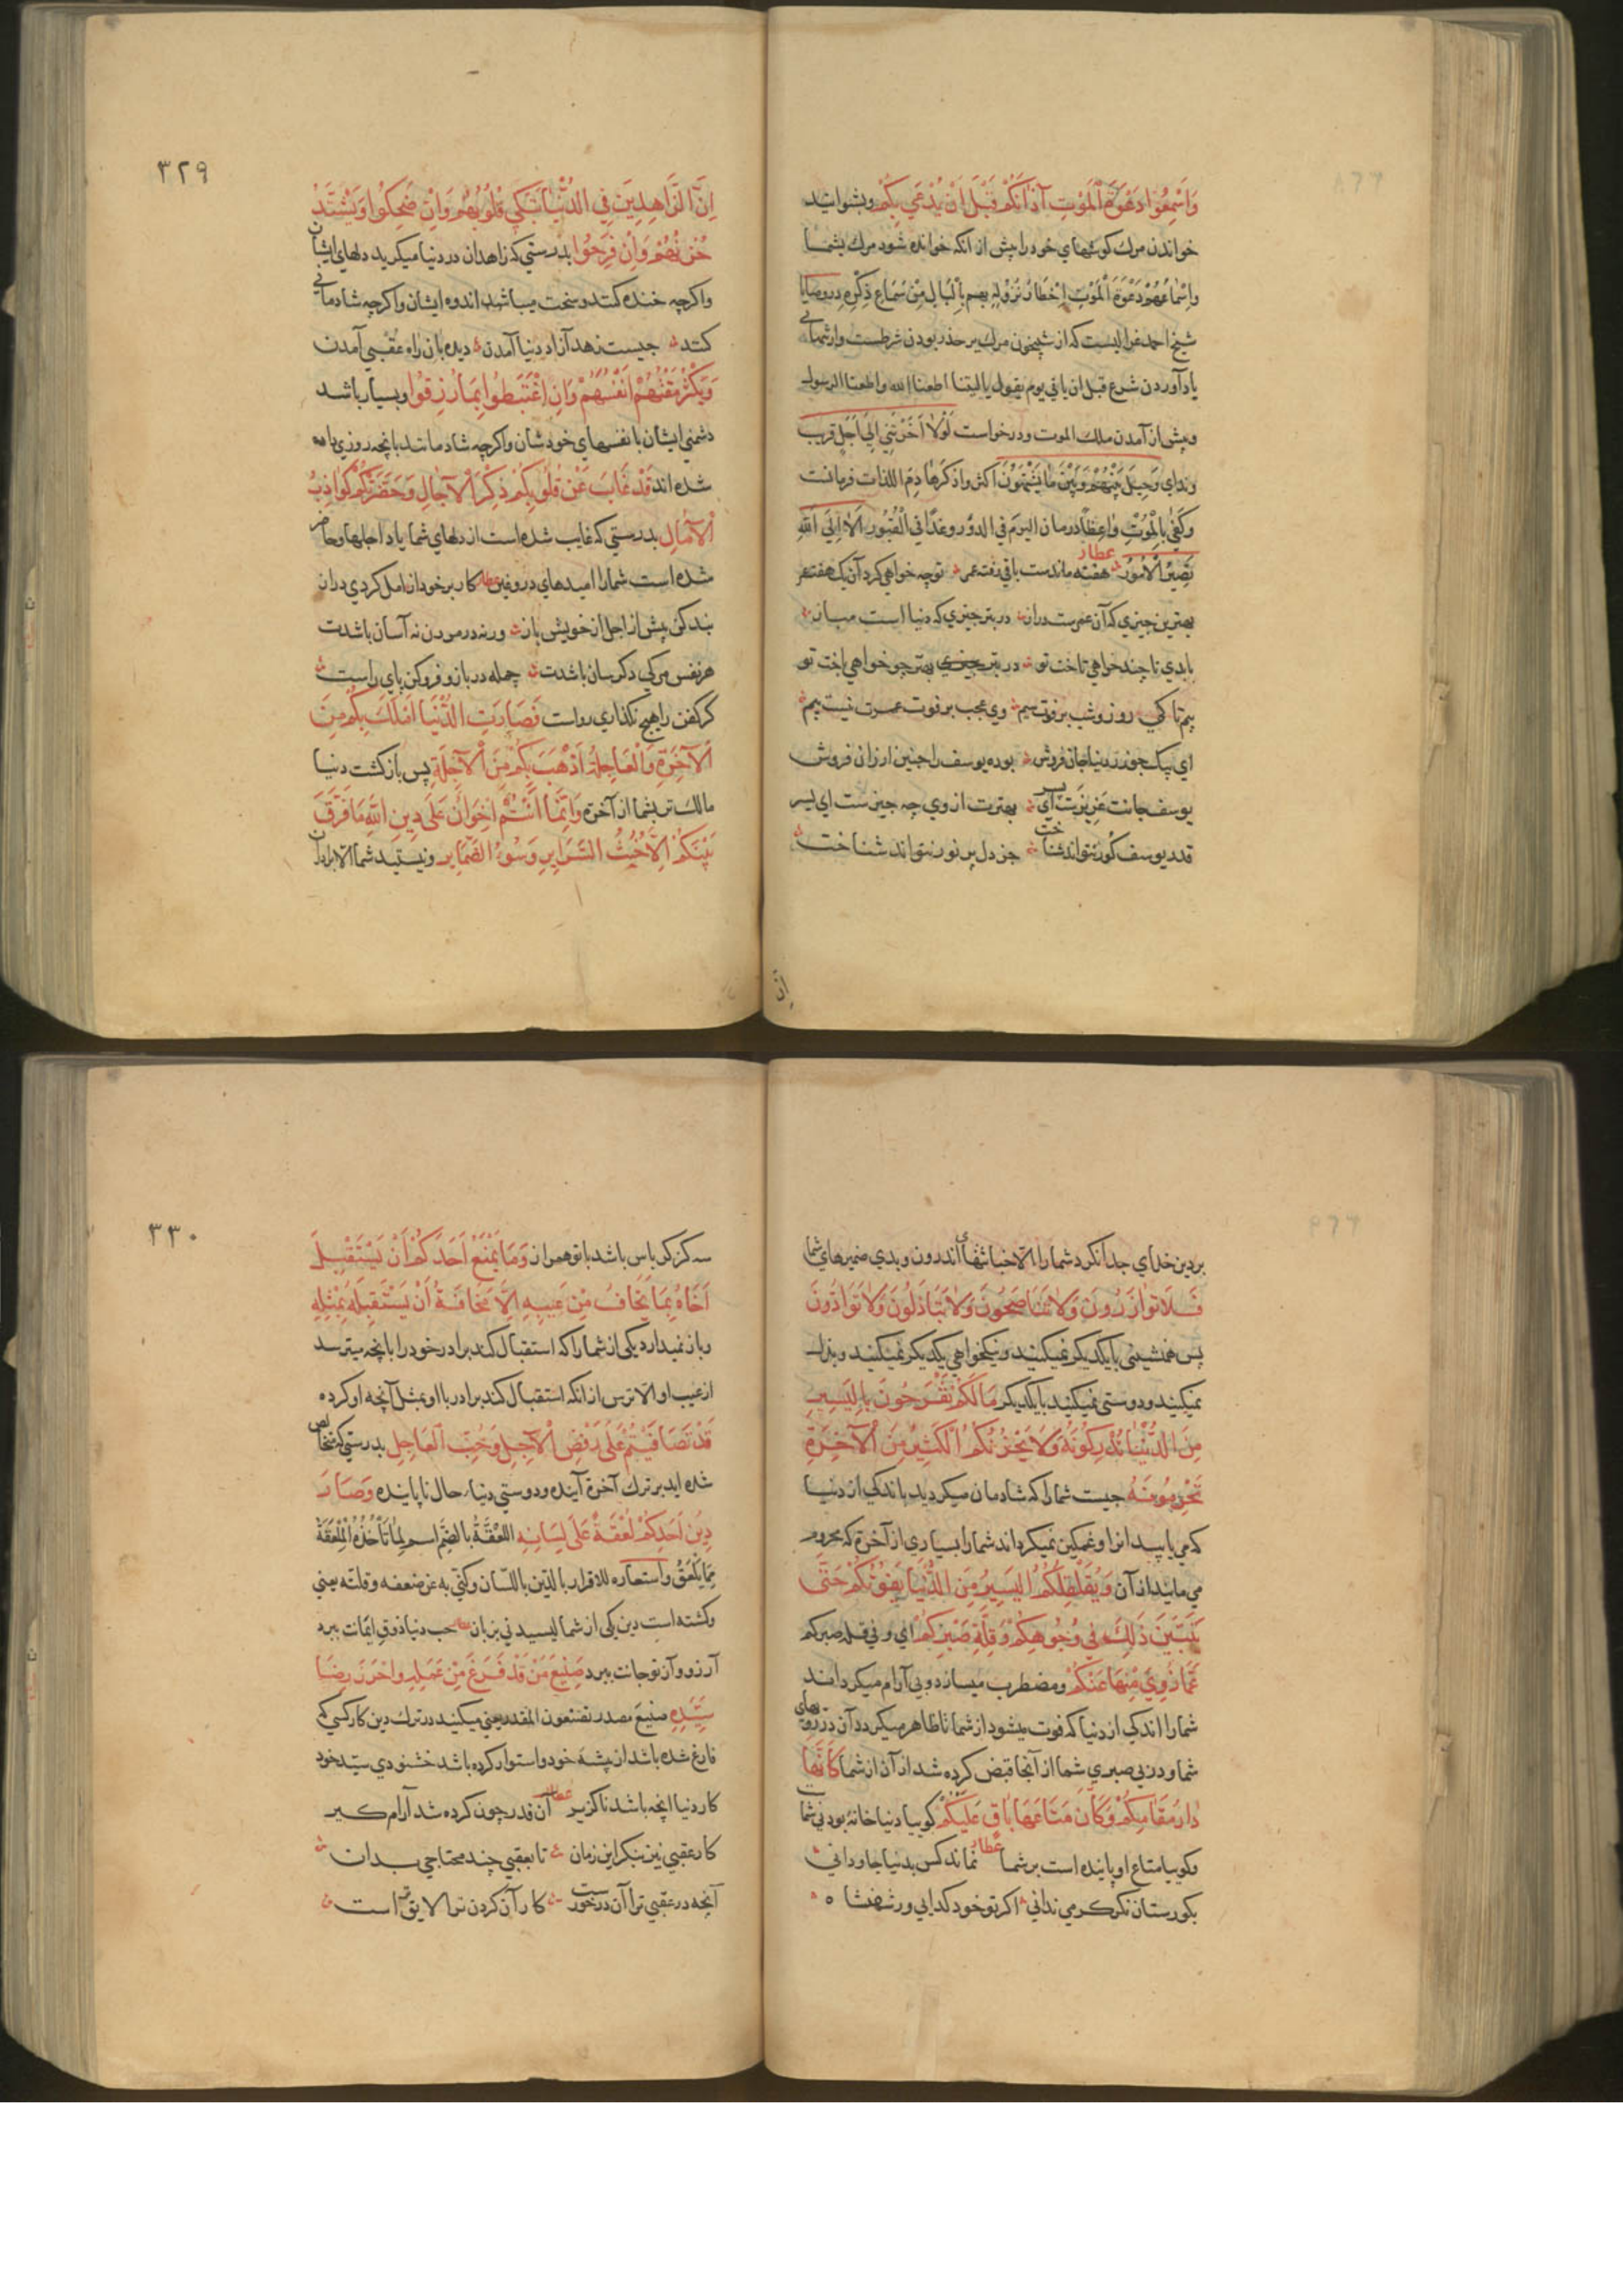 وَاسْمِعُوا دَعْوَةَ الْمَوْتِ آذَانَكُمْ قَبْلَ اَنْ يُدْعَي بِكُمْ وبشوانيد
خواندن مرك كوشهاي خود را پش از انكه خوانده شود مرك بشما
واِسْمَاعُهُمْ دَعْوَةَ الْمَوْتِ اِخْطَارُ نُزُولِهِ بهم بِالْبَالِ مِنْ سَمَاعِ ذِكْرِهِ در وصايا
شيخ احمد غزاليست كه از شبيخون مرك بر حذر بودن شرطست وارشماني
ياد آوردن شرع قبل ان ياتي يوم يقول ياليتنا اطعنا الله واطعنا الرسول
وپش از آمدن ملك الموت ودرخواست لَوْلَا اَخَّرْتَنِي اِلَي اَجَلٍ قريب
ونداي وَحِيلَ بَيْنَهُمْ وَبَيْنَ مَا يَشْتَهُونَ اكثروا ذكر هَادِم اللذات فرمانست
وكَفَي بِالْمَوْتِ وَاعِظًا درمان اليوم في الدور وغدًا في الْقُبُورِ اَلَا اِلَي اللهِ
تَصِيرُ الْاُمُورُ عطار هفته ماندست باقي رفته عمر توچه خواهي كرد آن يك هفته عمر
بهترين چيزي كه آن عمرست دران در بتر چيزي كه دنيا است مباز
بابدي تا چند خواهي تاخت تو در بتر چيزي بهتر چو خواهي باخت تو
بيم تا كي روز وشب بر فوت سيم وي عجب بر فوت عمرت نيست بيم
اي بيك جو زر دنيا جان فروش بوده يوسف را چنين ارزان فروش
يوسف جانت عزيزست اي پسر بهترت از وي چه چيزست اي پسر
قدر يوسف كور نتواند شناخت جز دل پر نور نتواند شناخت
اِنَّ
٣٢٩
اِنَّ الزَّاهِدِينَ فِي الدُّنْيَا تَبْكِي قُلُوبُهُمْ وَاِنْ ضَحِكُوا وَيَشْتَدُّ
حُزْنُهُمْ وَاِنْ فَرِحُوا بدرستي كه زاهدان در دنيا ميكريد دلهاي ايشان
واكرچه خنده كنند وسخت ميباشد اندوه ايشان واكرچه شادماني
كنند چيست زهد آزاد دنيا آمدن ديده بان راه عقبي آمدن
وَيَكْثُرُ مَقْتُهُمْ اَنْفُسَهُمْ وَاِنِ اغْتَبَطُوا بِمَا رُزِقُوا وبسيار باشد
دشمني ايشان با نفسهاي خودشان واكرچه شادمانند بانچه روزي داده
شده اند قَدْ غَابَ عَنْ قُلُوبِكُمْ ذِكْرُ الْآجَالِ وَحَضَرَتْكُمْ كَوَاذِبُ
الْآمَالِ بدرستي كه غايب شده است از دلهاي شما ياد اجلها وحاضر
شده است شما را اميدهاي دروغين عطار كار بر خود از امل كردي دران
بند كن پيش از اجل از خويش باز ورنه در مردن نه آسان باشدت
هر نفس مركي دكر سان باشدت جمله در باز وفروكن پاي راست
كر كفن را هيچ نكذاري رواست فَصَارَتِ الدُّنْيَا اَمْلَكَ بِكُمْ مِنَ
الْآخِرَةِ وَالْعَاجِلَةُ اَذْهَبَ بِكُمْ مِنَ الْآجِلَةِ پس بازكشت دنيا
مالك تر بشما از آخرة وَاِنَّمَا اَنْتُمْ اِخْوَانٌ عَلَي دِينِ اللهِ مَا فَرَّقَ
بَيْنَكُمْ اِلَّا خُبْثُ السَّرَايِرِ وَسُوءُ الضَّمَايِرِ ونيستيد شما الا برادران
بر دين خداي جدا نكرد شما را الا خباثتهاي اندرون وبدي ضميرهاي شما
فَلَا تَوَازَرُونَ وَلَا تَنَاصَحُونَ وَلَا تَبَاذَلُونَ وَلَا تَوَادُّونَ
پس همنشيني با يكديكر نميكنيد ونيكخواهي يكديكر نميكنيد وبذل
نميكنيد ودوستي نميكنيد با يكديكر مَا لَكُمْ تَفْرَحُونَ بِالْيَسِيرِ
مِنَ الدُّنْيَا تُدْرِكُونَهُ وَلَا يَحْزُنُكُمُ الْكَثِيرُ مِنَ الْآخِرَةِ
تُحْرَمُونَهُ چيست شما را كه شادمان ميكرديد باندكي از دنيا
كه مي يابيد انرا وغمكين نميكرداند شما را بسياري از آخرة كه محروم
مي مانيد از آن وَيُقْلِقُكُمُ الْيَسِيرُ مِنَ الدُّنْيَا يَفُوتُكُمْ حَتَّي
يَتَبَيَّنَ ذَلِكَ فِي وُجُوهِكُمْ وَقِلَّةِ صَبْرِكُمْ اي وفي قلة صبركم
عَمَّا زُوِيَ مِنْهَا عَنْكُمْ ومضطرب ميسازد وبي آرام ميكرداند
شما را اندكي از دنيا كه فوت ميشود از شما تا ظاهر ميكردد آن در رويهاي
شما ودر بي صبري شما از آنجا قبض كرده شد از آن از شما كَاَنَّهَا
دَارُ مُقَامِكُمْ وَكَاَنَّ مَتَاعَهَا بَاقٍ عَلَيْكُمْ كوييا دنيا خانه بودني شما
وكوييا متاع او پاينده است بر شما عطار نماند كس بدنيا جاوداني
بكورستان نكر كر مي نداني اكر تو خود كدايي ور شهنشا ه
٣٣٠
سه كز كرباس باشد با تو همراز وَمَا يَمْنَعُ اَحَدَكُمْ اَنْ يَسْتَقْبِلَ
اَخَاهُ بِمَا يَخَافُ مِنْ عَيْبِهِ اِلَّا مَخَافَةُ اَنْ يَسْتَقْبِلَهُ بِمِثْلِهِ
وباز نميدارد يكي از شما را كه استقبال كند برادر خود را بانچه ميترسد
از عيب او الا ترس از انكه استقبال كند برادر با او بمثل آنچه او كرده
قَدْ تَصَافَيْتُمْ عَلَي رَفْضِ الْآجِلِ وَحُبِّ الْعَاجِلِ بدرستي كه مخالص
شده ايد بر ترك آخرة آينده ودوستي دنياء حال ناپاينده وَصَارَ
دِينُ اَحَدِكُمْ لُعْقَةً عَلَي لِسَانِهِ اللُعْقَةُ بالضَّمِّ اسم لِمَا تَاْخُذُهُ الْمِلْعَقَةُ
مِمَّا يُلْعَقُ واستعاره للاقرار بالدين باللسان وكني به عن ضعفه وقلته يعني
وكشته است دين يكي از شما ليسيدني بر زبان عطار حب دنيا ذوق ايمانت ببرد
آرزو و آز تو جانت ببرد صَنِيعَ مَنْ قَدْ فَرَغَ مِنْ عَمَلِهِ وَاَحْرَزَ رِضَا
سَيِّدِهِ صنيع مصدر تصنعون المقدر يعني ميكنيد در ترك دين كار كسي كه
فارغ شده باشد از پيشه خود واستوار كرده باشد خشنودي سيّد خود
كار دنيا انچه باشد ناكزير عطار آن قدر چون كرده شد آرام كير
كار عقبي نيز بنكر اين زمان تا بعقبي چند محتاجي بدان
آنچه در عقبي ترا آن درخورست كار آن كردن ترا لايق تر است